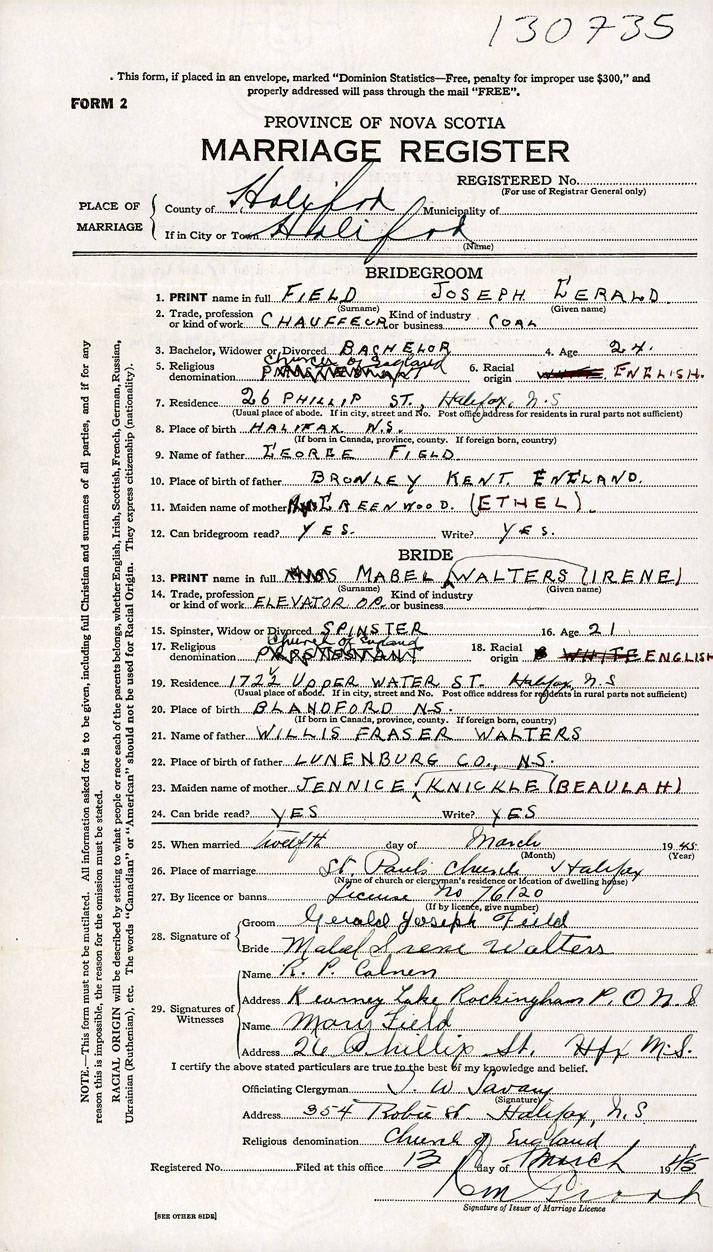 130735
. This form, if placed in an envelope, marked "Dominion Statistics—Free, penalty for improper use $300," and
properly addressed will pass through the mail "FREE".
FORM 2
PROVINCE OF NOVA SCOTIA
MARRIAGE REGISTER
REGISTERED No.
(For use of Registrar General only)
PLACE OF MARRIAGE
County of Halifax Municipality of
If in City or Town Halifax
(Name)
BRIDEGROOM
1. PRINT name in full FIELD JOSEPH GERALD
(Surname) (Given name)
2. Trade, profession or kind of work CHAUFFEUR Kind of industry or business COAL
3. Bachelor, Widower or Divorced BACHELOR 4. Age 24.
5. Religious denomination Church of England 6. Racial origin ENGLISH.
7. Residence 26 PHILLIP ST., Halifax, N.S
(Usual place of abode. If in city, street and No. Post office address for residents in rural parts not sufficient)
8. Place of birth HALIFAX N.S.
(If born in Canada, province, county. If foreign born, country)
9. Name of father GEORGE FIELD
10. Place of birth of father BRONLEY KENT. ENGLAND.
11. Maiden name of mother GREENWOOD. (ETHEL)
12. Can bridegroom read? YES. Write? YES.
BRIDE
13. PRINT name in full MABEL WALTERS (IRENE)
(Surname) (Given name)
14. Trade, profession or kind of work ELEVATOR OP. Kind of industry or business
15. Spinster, Widow or Divorced SPINSTER 16. Age 21
17. Religious denomination Church of England PROTESTANT 18. Racial origin WHITE ENGLISH
19. Residence 172½ UPPER WATER ST. Halifax, N.S
(Usual place of abode. If in city, street and No. Post office address for residents in rural parts not sufficient)
20. Place of birth BLANDFORD N.S.
(If born in Canada, province, county. If foreign born, country)
21. Name of father WILLIS FRASER WALTERS
22. Place of birth of father LUNENBURG CO., N.S.
23. Maiden name of mother JENNICE KNICKLE (BEAULAH)
24. Can bride read? YES Write? YES
25. When married twelfth day of March 1945
(Month) (Year)
26. Place of marriage St. Paul's Church Halifax
(Name of church or clergyman's residence or location of dwelling house)
27. By licence or banns License No 76120
(If by licence, give number)
28. Signature of
Groom Gerald Joseph Field
Bride Mabel Irene Walters
29. Signatures of Witnesses
Name R. P.
Address Kearney Lake Rockingham P.O. N.S
Name Mary Field
Address 26 Phillip St. Hfx N.S.
I certify the above stated particulars are true to the best of my knowledge and belief.
Officiating Clergyman T. W. Savary
(Signature)
Address 354 Robie St. Halifax, N.S
Religious denomination Church of England
Registered No. Filed at this office 13 day of March 1945
Signature of Issuer of Marriage Licence
[SEE OTHER SIDE]
NOTE.—This form must not be mutilated. All information asked for is to be given, including full Christian and surnames of all parties, and if for any
reason this is impossible, the reason for the omission must be stated.
RACIAL ORIGIN will be described by stating to what people or race each of the parents belongs, whether English, Irish, Scottish, French, German, Russian,
Ukrainian (Ruthenian), etc. The words "Canadian" or "American" should not be used for Racial Origin. They express citizenship (nationality).